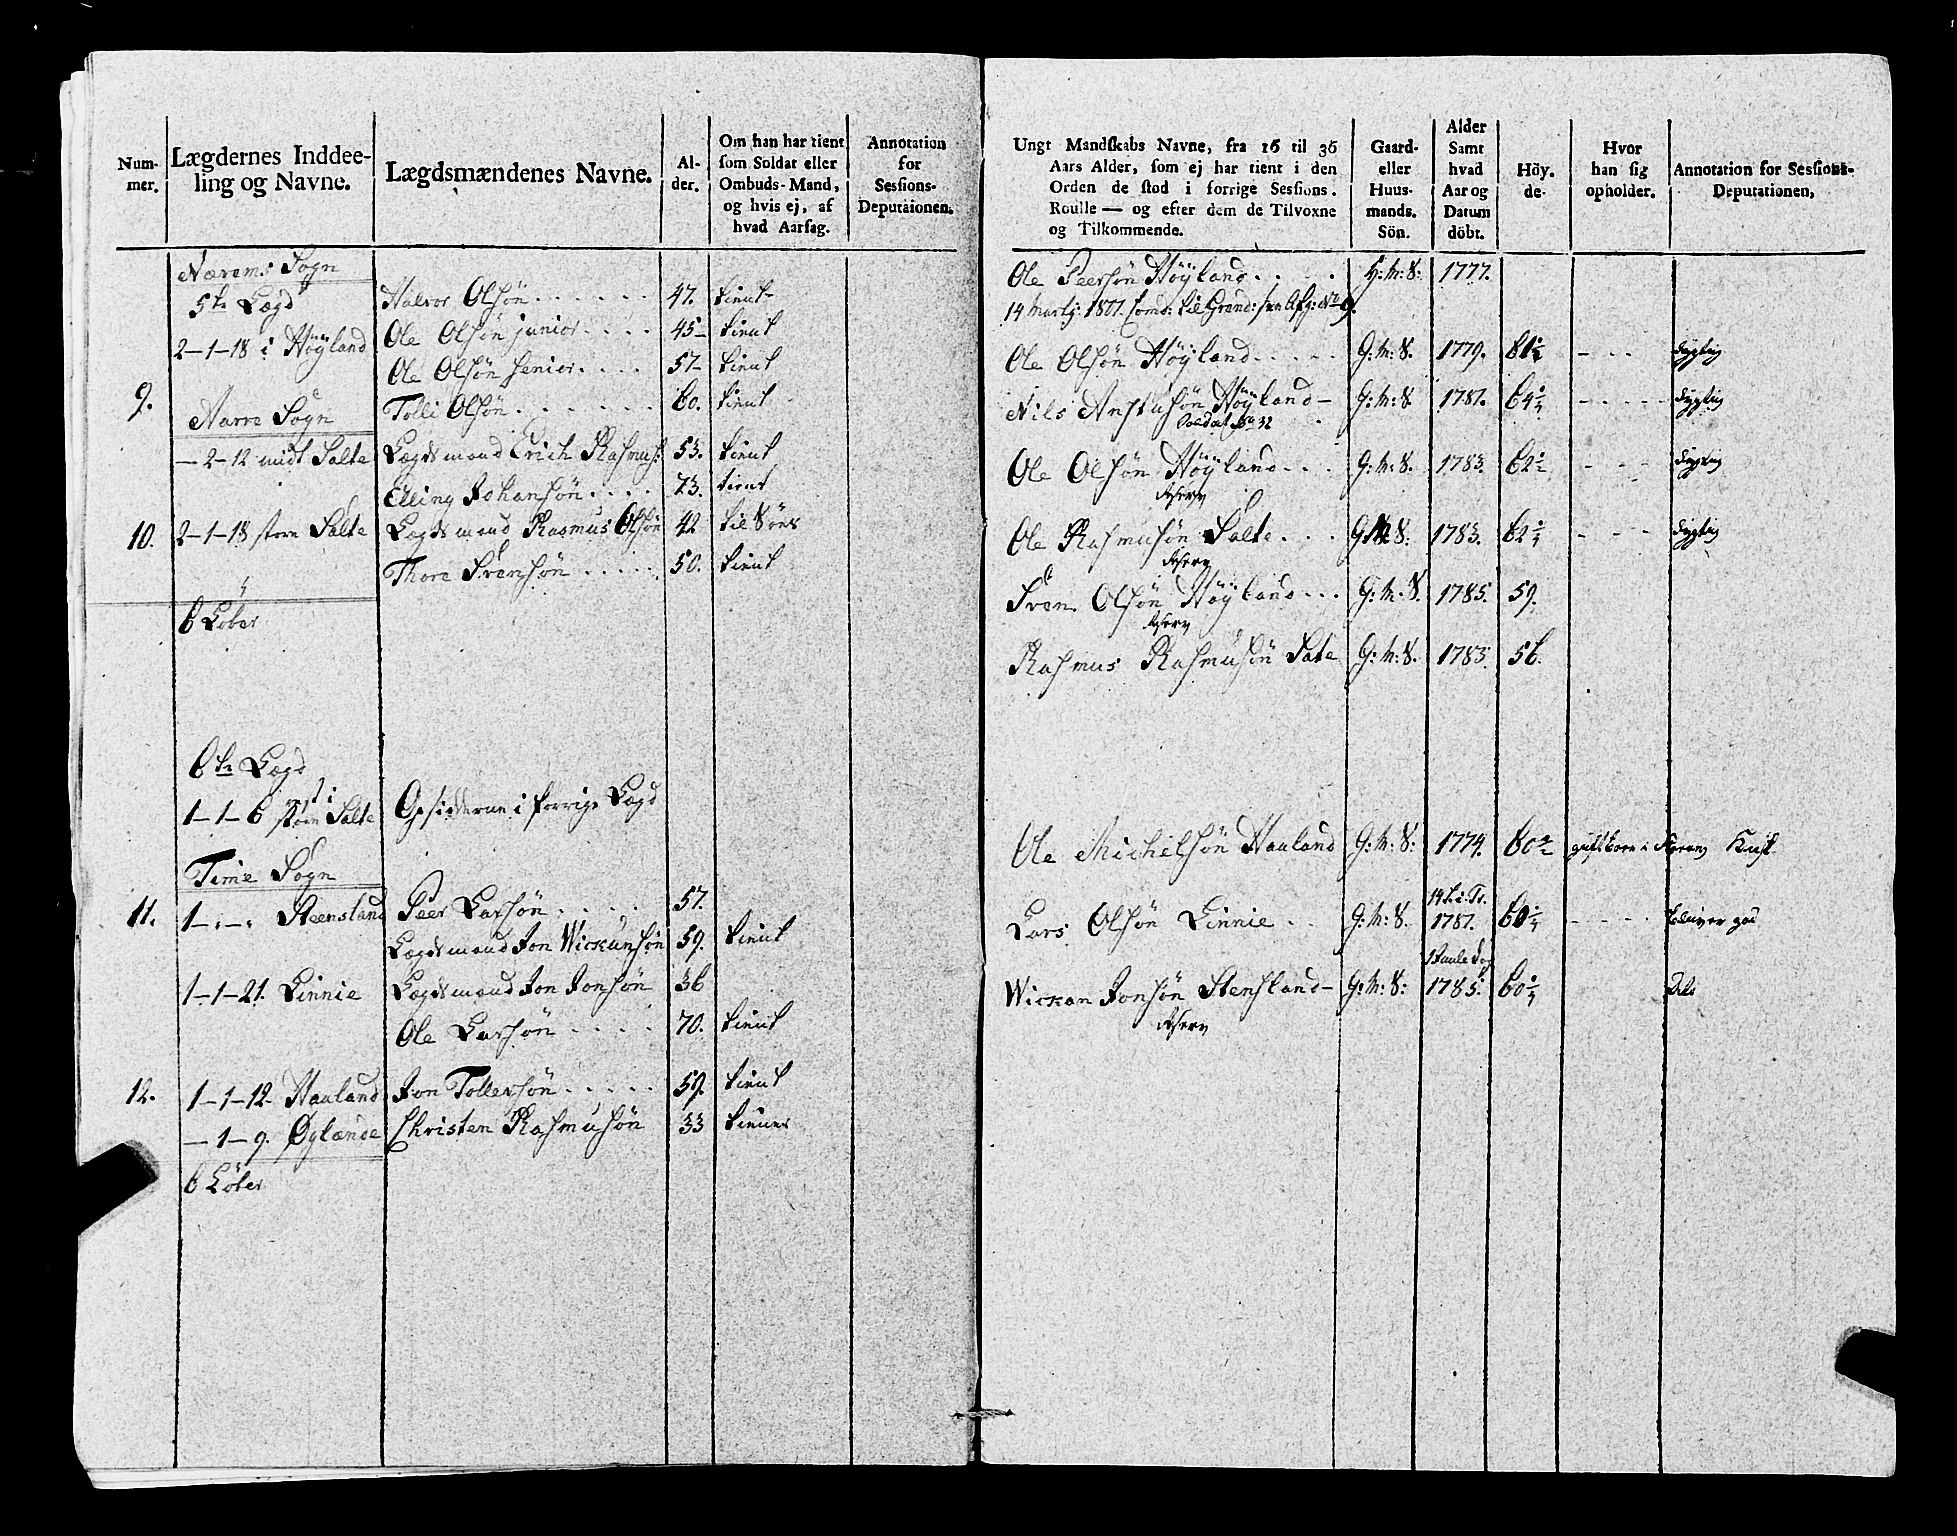 Num-
mer.
Lægdernes Inddee-
ling og Navne.
Lægdsmændenes Navne.
Al-
der.
Om han har tient
som Soldat eller
Ombuds-Mand,
og hvis ej, af
hvad Aarsag.
Annotation
for
Sessions-
Deputaionen.
Nærems Sogn
5te Lægd
Halvor Olsøn 47. tient
2-1-18 i Höÿland
Ole Olsön junior 45 tient
Ole Olsön senior 57 tient
9.
Tolli Olsön 60. tient
Narre Sogn
-2-12 midt Salte Lægdsmand Erich Rasmus: 53. tient
Elling Johansön 73. tient
10. 2-1-18 store Salte Lægdsmand Rasmus Olsön 42 til Söes
Thore Svensön 50. tient
6 Löber
6te Lægd
1-1-6 store Salte
i forrige Lægd
Time Sogn
11. 1-"-" Steensland Peer Larsön 57.
Lægdsmand Jon Wickunsön 59. tient
1-1-21. Linnie Lægdsmand Jon Jonsön 36
Ole Larsön 70. tient
12. 1-1-12 Hauland Jon Tollersön 59. tient
-1-9. Øglænde Christen Rasmusön 33 tiener
6 Löber
Ungt Mandskabs Navne, fra 16 til 36
Aars Alder, som ej har tient i den
Orden de stod i forrige Sessions.
Roulle — og efter dem de Tilvoxne
og Tilkommende.
Gaard-
eller
Huus-
mands.
Sön.
Alder
Samt
hvad
Aar og
Datum
döbt.
Höy.
de.
Hvor
han sig
opholder.
Annotation for Sessions-
Deputationen,
Ole Peersön Höÿland H: M: S: 1777.
14 Martj: 1801.
Ole Olsön Höÿland G: M: S. 1779. 61½ dygtig
Nils Höÿland G: M: S 1781. 64¼ dygtig
Soldat No 32
Ole Olsön Höÿland G: M: S. 1783. 62½ dygtig
Reserv
Ole Rasmusön Salte G M S: 1783. 62¼ dygtig
Reserv
Sven Olsön Höÿland G: M: S. 1785. 59.
Reserv
Rasmus Rasmusön Salte G: M: S. 1783. 56.
Ole Michelsön Hauland G: M: S: 1774. 60½
14 S: i Tr.
Lars Olsön Linnie G: M: S. 1781. 60¼
Wickan Jonsön Stensland G: M: S: 1785. 60¼
Reserv